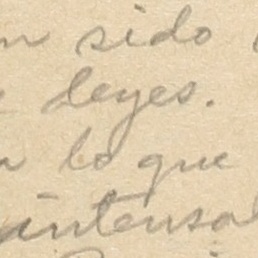 sido
leyes.
lo que
intensa